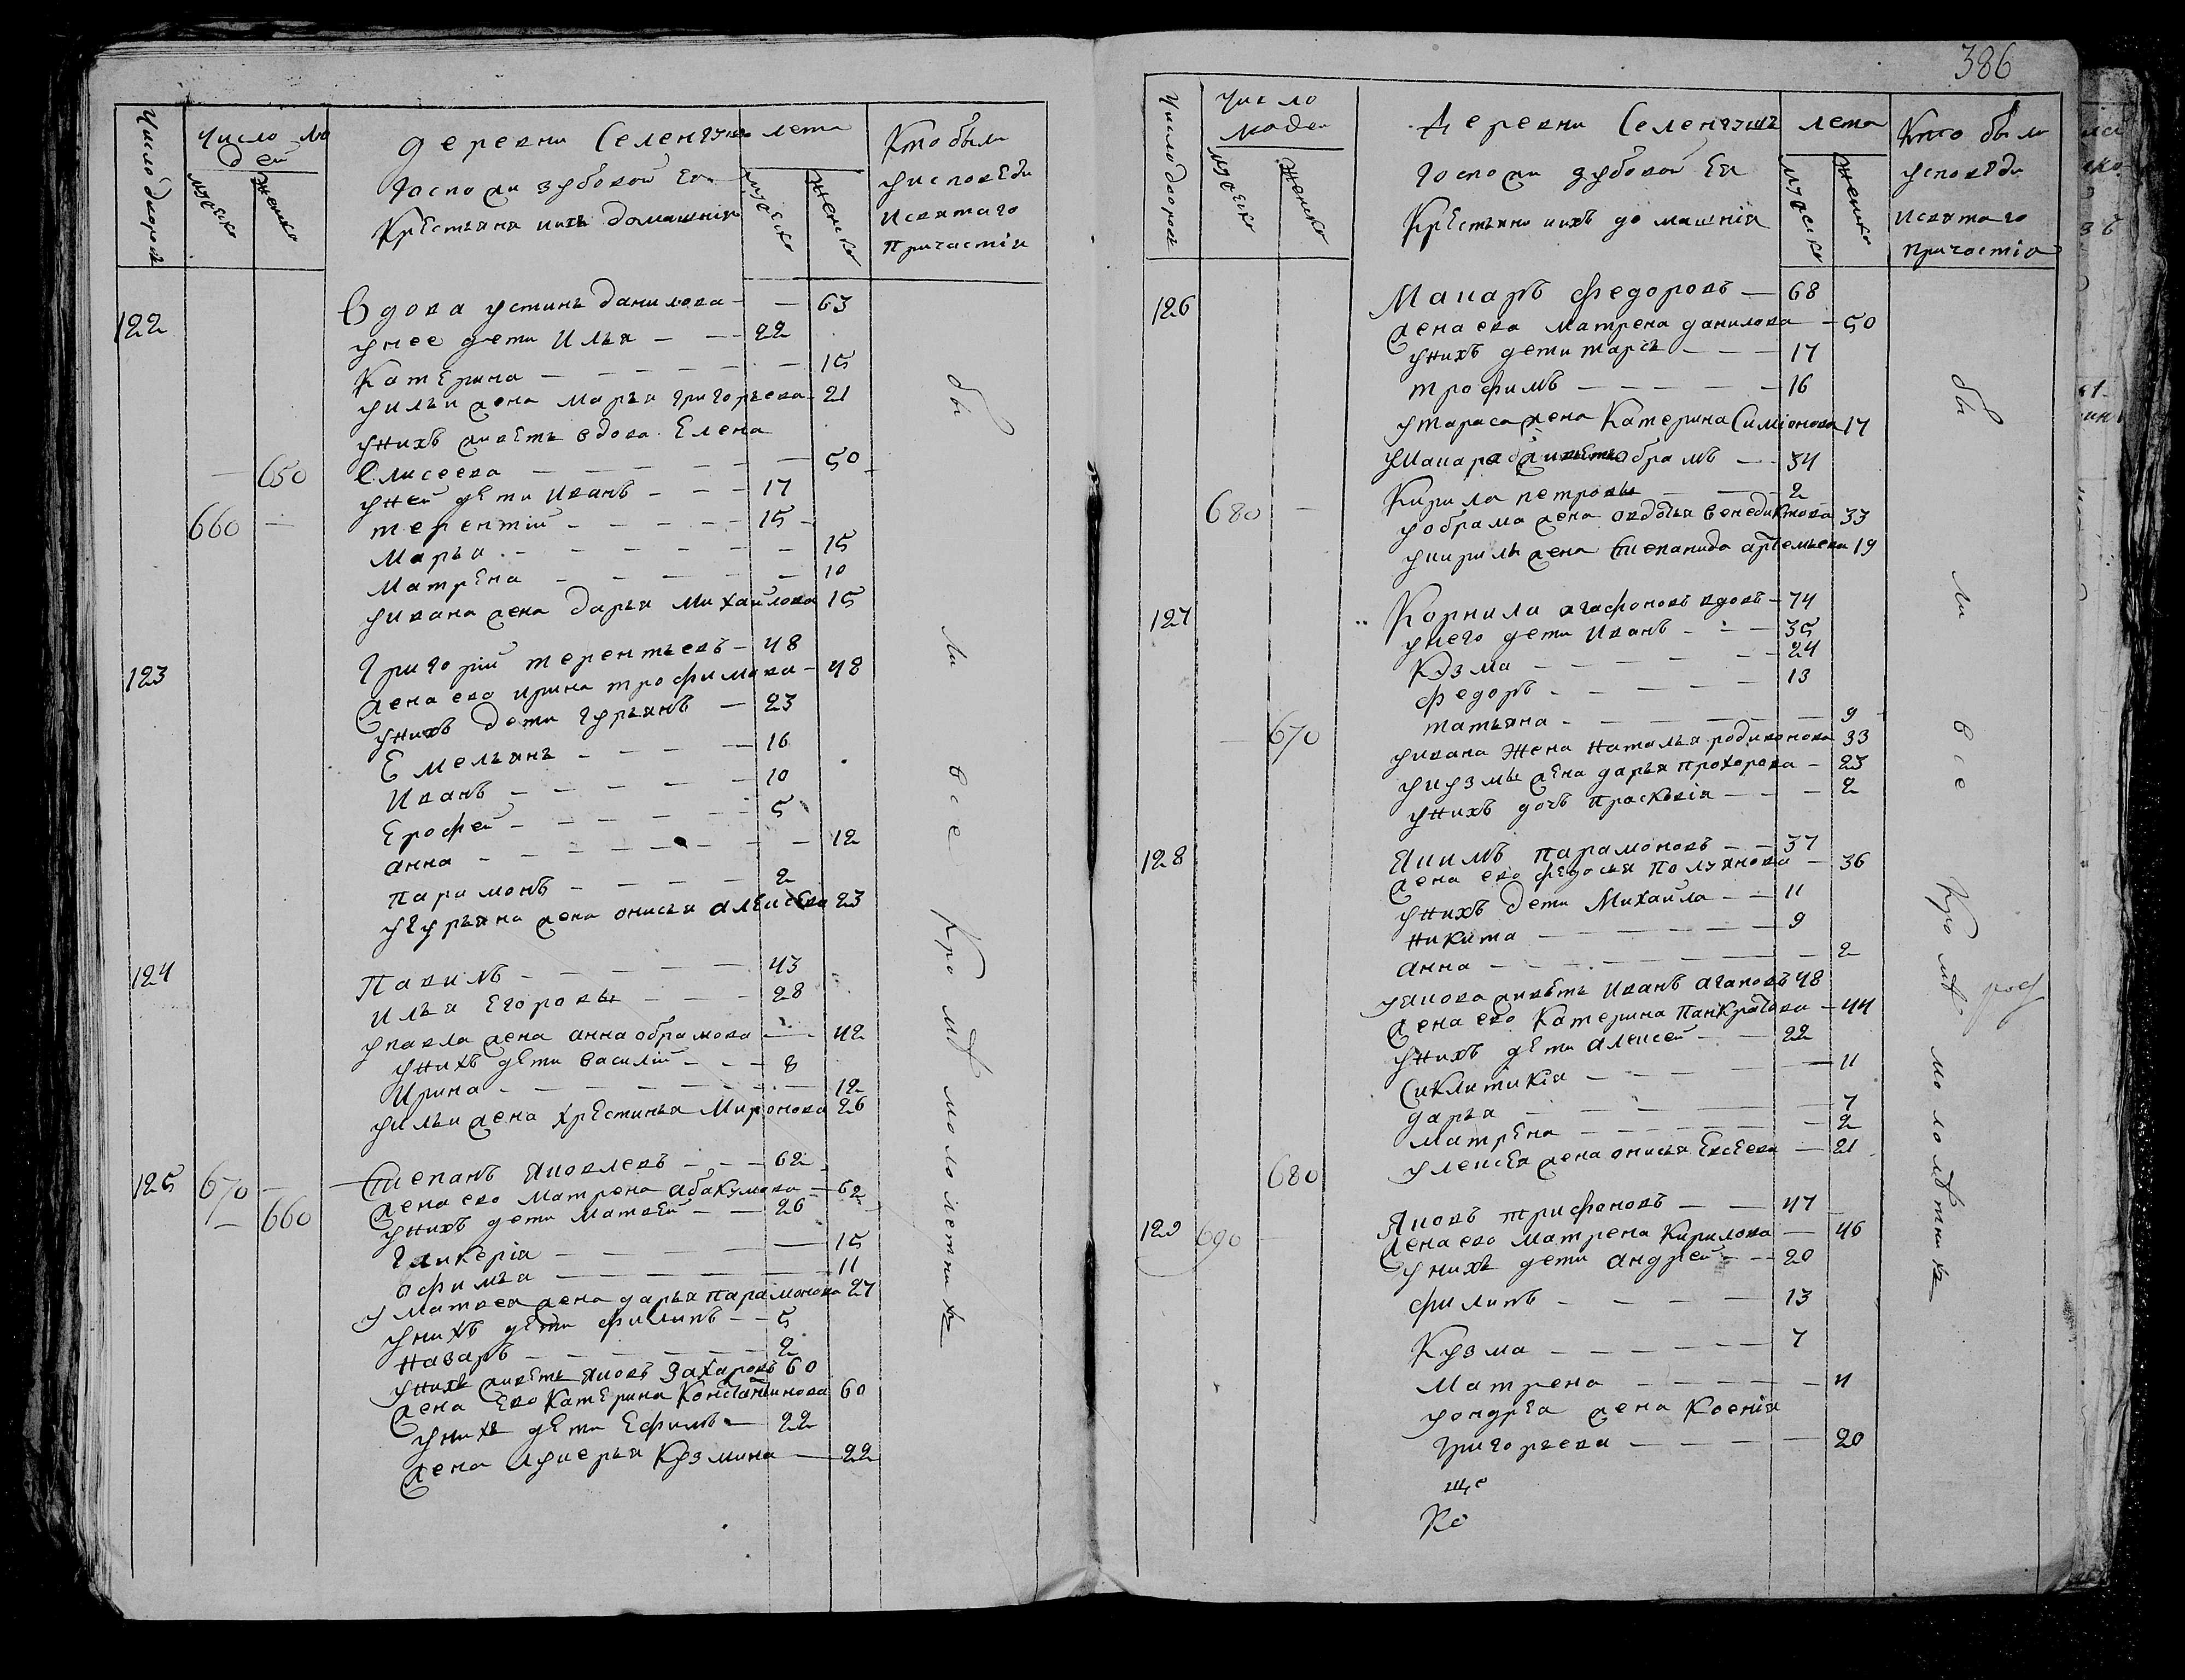 число дворовъ
число лю
дей
мужеска
женска
деревни Селенгушъ
госпожи зубовой Ея
Крестьяня ихъ домашнія
лета
мужеска
женска
Кто были
уисповеди
исвятаго
причастія
122
Вдова устинъ данилова — — 63
унее дети Илья — — 22
Катерина — — — — — 15
уильи жена марья григорьева 21
унихъ живетъ вдова Елена
— 650 Елисеева — — — — — 50
уней дети иванъ — — — 17
660 — терентій — — — — 15
марья — — — — — — 15
матрена — — — — — 10
уивана жена дарья михайлова 15
123
григорій терентьевъ — 48
жена ево ирина трофимова — 48
унихъ дети гурьянъ — 23
Емельянъ — — — — 16
иванъ — — — — — 10
Ерофей — — — — — 5
анна — — — — — — 12
парамонъ — — — — 2
угурьяна жена онисья алексеева 23
124
павилъ — — — — — 43
илья Егоровы — — — 28
упавла жена анна обрамова — 42
унихъ дети василій — — 8
ирина — — — — — — 12
уильи жена хрестинья миронова 26
125 670 — Степанъ яковлевъ — — 62
— 660 жена ево матрена абакумова — 62
унихъ дети матвей — — 26
гликерія — — — — — 15
офимья — — — — — 11
у матвея жена дарья парамонова 27
унихъ дети филипъ — — 5
назаръ — — — — — 2
унихъ живетъ яковъ захаровъ 60
жена ево катерина константинова 60
унихъ дети ефимъ — 22
жена лукерья кузмина — 22
бы
ли
все
кромѣ
малолетныхъ
386
число дворовъ
число
людей
мужеска
женска
деревни Селенгушъ
госпожи зубовой Ея
Крестьяня ихъ домашнія
лета
мужеска
женска
Кто были
уисповеди
исвятаго
причастія
126
Макаръ федоровъ — 68
жена ево матрена данилова — 50
унихъ дети тарасъ — — — 17
трофимъ — — — — — 16
утараса жена катерина симіонова 17
умакара живетъ обрамъ — 34
680 — Кирила петровы — — 2
уобрама жена овдотья венедиктова 33
укирилы жена степанида артемьева 19
127
Корнила агафоновъ вдовъ — 74
унего дети иванъ — — — 35
Кузма — — — — — 24
федоръ — — — — — 13
татьяна — — — — — — 9
— 670 уивана жена наталья родивонова 33
укузмы жена дарья прохорова — 23
унихъ дочь прасковія — — — 2
128
якимъ парамоновъ — — 37
жена ево федосья полуянова — 36
унихъ дети михаила — — 11
никита — — — — — 9
анна — — — — — — 2
уякова живетъ иванъ агаповъ 48
жена ево катерина панкратова — 44
унихъ дети алексей — — 22
Сиклитикія — — — — — 11
дарья — — — — — — 7
матрена — — — — — 2
680 улексея жена онисья евсеева — 21
129 690 — яковъ трифоновъ — — 47
жена ево матрена кирилова — 46
унихъ дети андрей — — 20
филипъ — — — — 13
Кузма — — — — — 7
матрена — — — — — 4
уондрея жена ксенія
григорьева — — — — 20
ще
Ко
бы
ли
все
кромѣ
малолѣтныхъ